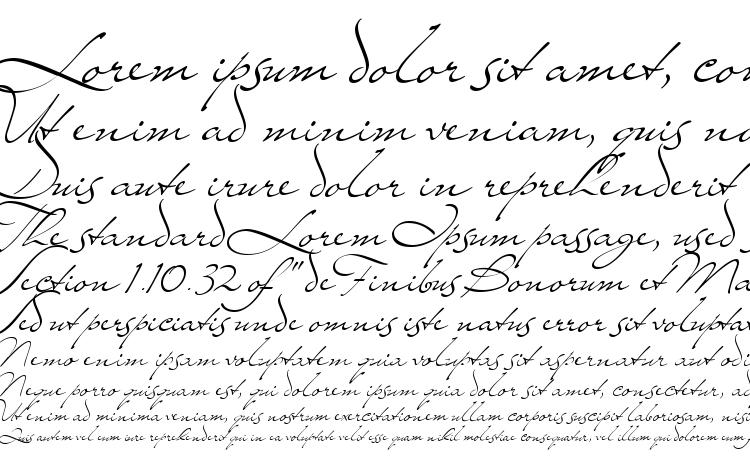 Lorem ipsum dolor sit amet, con
Ut enim ad minim veniam, quis no
Duis aute irure dolor in reprehenderit
The standard Lorem Ipsum passage, used
Section 1.10.32 of "de Finibus Bonorum et Ma
Sed ut perspiciatis unde omnis iste natus error sit voluptat
Nemo enim ipsam voluptatem quia voluptas sit aspernatur aut odi
Neque porro quisquam est, qui dolorem ipsum quia dolor sit amet, consectetur, ad
Ut enim ad minima veniam, quis nostrum exercitationem ullam corporis suscipit laboriosam, nisi
Quis autem vel eum iure reprehenderit qui in ea voluptate velit esse quam nihil molestiae consequatur, vel illum qui dolorem eum f